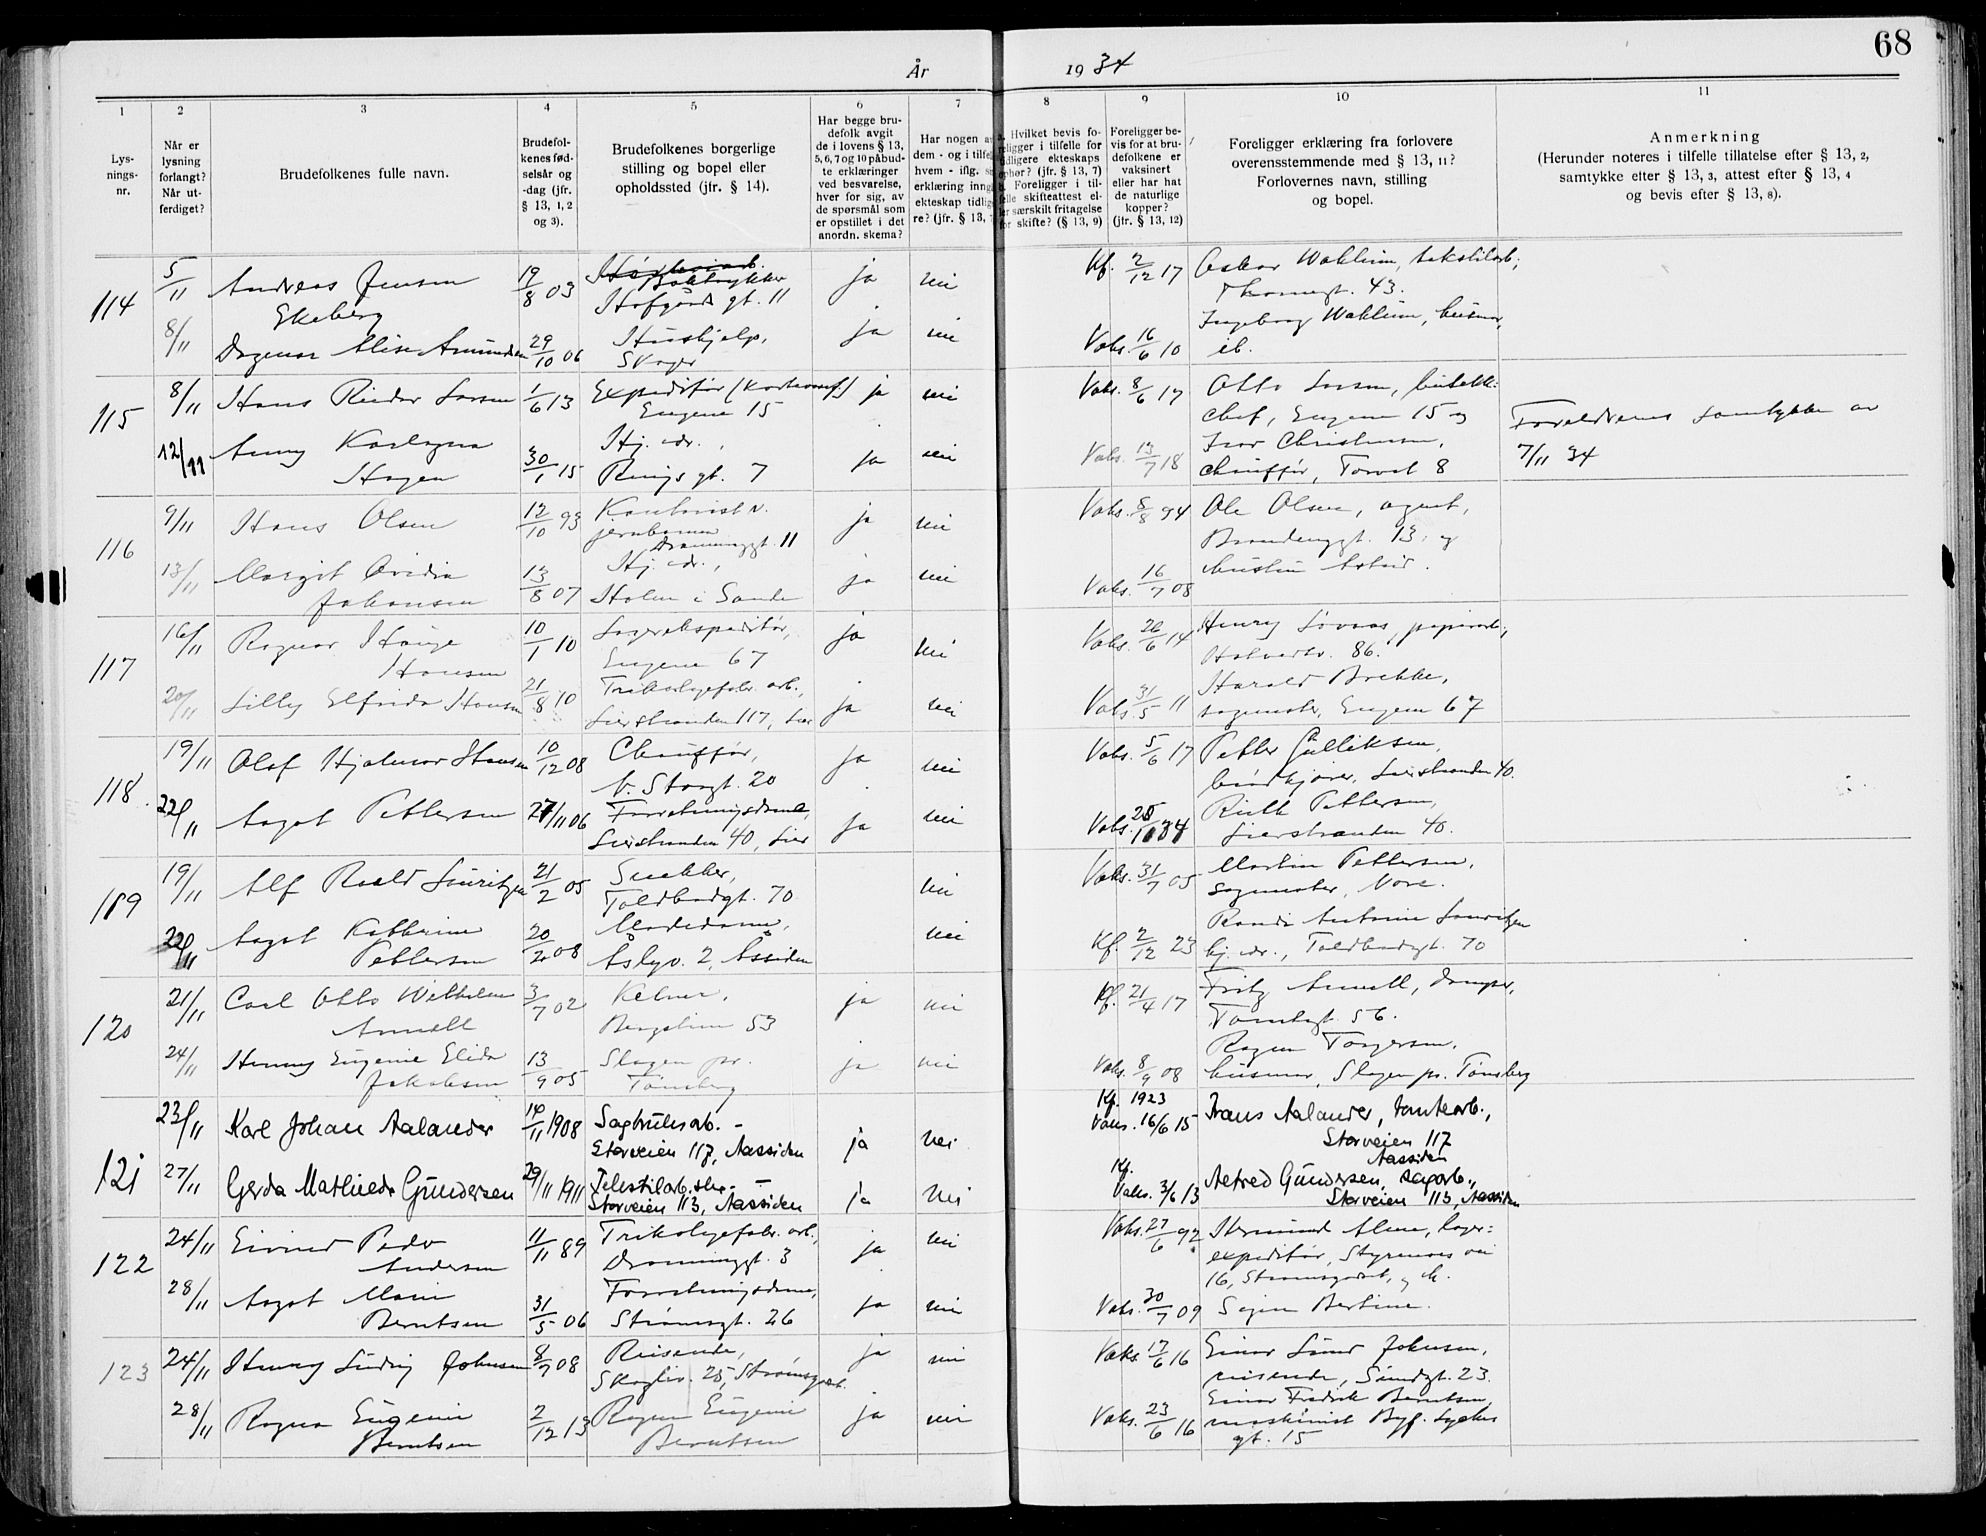 68
År 1934
1 2 3 4 5 6 7 8 9 10 11
Lys-
nings-
nr.
Når er
lysning
forlangt?
Når ut-
ferdiget?
Brudefolkenes fulle navn.
Brudefol-
kenes fød-
selsår og
-dag (jfr.
§ 13, 1, 2
og 3).
Brudefolkenes borgerlige
stilling og bopel eller
opholdssted (jfr. § 14).
Har begge bru-
defolk avgit
de i lovens § 13,
5, 6, 7 og 10 påbud-
te erklæringer
ved besvarelse,
hver for sig, av
de spørsmål som
er opstillet i det
anordn. skema?
Har nogen av
dem - og i tilfelle
hvem - iflg.
erklæring inngå
ekteskap tidlige
re? (jfr. § 13, 7
Hvilket bevis fo-
religger i tilfelle for
tidligere ekteskaps
ophør? (jfr. § 13, 7)
Foreligger i til-
felle skifteattest el-
ler særskilt fritagelse
for skifte? (§ 13, 9)
Foreligger be-
vis for at bru-
defolkene er
vaksinert
eller har hat
de naturlige
kopper?
(jfr. § 13, 12)
Foreligger erklæring fra forlovere
overensstemmende med § 13, 11?
Forlovernes navn, stilling
og bopel.
Anmerkning
(Herunder noteres i tilfelle tillatelse efter § 13, 2,
samtykke efter § 13, 3, attest efter § 13, 4
og bevis efter § 13, 8).
114 5/11 Andreas Jensen 19/8 03 Boktrykker ja nei Kf. 2/12 17 Oskar Wahlum, tekstilarb.,
Ekeberg Hofgårds gt. 11 43.
8/11 Dagmar Alise Amundsen 29/10 06 Hushjelp, ja nei Vaks. 16/6 10 Ingeborg Wahlum, husmor,
Skoger ib.
115 8/11 Hans Reidar Larsen 1/6 13 Expeditør ja nei Vaks. 8/6 17 Otto Larsen, butikk-
Engene 15 chef, Engene 15 og
12/11 Anny Karlagna 30/1 15 Hj. vdr., ja nei Vaks. 13/7 18 Ivar Christensen,
Hagen Rings gt. 7 chauffør, Torvet 8
Foreldrenes samtykke av
7/11 34
116 9/11 Hans Olsen 12/10 93 Kontorist v. ja nei Vaks. 8/8 94 Ole Olsen, agent,
jernbanen
Dronninggt. 11 13, og
13/11 Margit Ovidia 13/8 07 Hj. vdr., ja nei Vaks. 16/7 08 hustru Astrid.
Johansen Holm i Sande
117 16/11 Ragnar Hauge 10/1 10 Lagerekspeditør, ja nei Vaks. 26/6 14 Henry Lövaas, papirarb.,
Hansen Engene 67 86.
20/11 Lilly Elfrida Hansen 21/8 10 Trikotagefabr. arb., ja nei Vaks. 31/5 11 Harald Brekke,
Lierstranden 117, Lier sagmester, Engene 67
118 19/11 Olaf Hjalmar Hansen 10/12 08 Chauffør, ja nei Vaks. 5/6 17 Petter Gulliksen,
V. Storgt. 20 Lierstranden 40.
22/11 Aagot Pettersen 27/11 06 Forretningsdame, ja nei Vaks. 34 Ruth Pettersen,
Lierstranden 40, Lier Lierstranden 40.
119 19/11 Alf Roald Lauritzen 21/2 05 Snekker, nei Vaks. 31/7 05 Martin Pettersen,
Toldbodgt. 70 sagmester, Nore.
22/11 Aagot Kathrine 08 Motedame, nei Kf. 2/12 23 Randi Antonie Lauritzen
Pettersen Åslyv. 2, Åssiden hj. vdr., Toldbodgt. 70
120 21/11 Carl Otto Wilhelm 3/7 02 Kelner, ja nei Kf. 21/4 17 Fritz Arnell,
Arnell Bergstien 53 56.
24/11 Henny Eugenie Elida 13/9 05 Slagen pr. ja nei Vaks. 8/9 08 Ragna Torgersen,
Jakobsen Tønsberg husmor, Slagen pr. Tønsberg
121 23/11 Karl Johan Aalander 14/11 1908 Sagbruksarb. - ja nei Kf. 1923 Vaks. 16/6 15 Frans Aalander, tomtearb.,
Storveien 117, Aassiden Storveien 117
Aassiden
27/11 Gerda Mathilde Gundersen 29/11 1911 ja nei Kf. Vaks. 3/6 13 Alfred Gundersen, sagarb.,
Storveien 113, Aassiden Storveien 113, Aassiden
122 24/11 Eivind Pedro 11/11 89 Trikotagefabr. arb., ja nei Vaks. 27/6 92 Hermund Moen, lager-
Andersen Dronninggt. 3 expeditør, Styrmoes vei
16, Strømsgodset, og
28/11 Aagot Marie 31/5 06 Forretningsdame, ja nei Vaks. 30/7 09 Signe Bertine.
Berntsen Strømsgt. 26
123 24/11 Henry Ludvig Johnsen 8/7 08 Reisende, ja nei Vaks. 17/6 16 Einar Lund Johnsen,
Skogliv. 25, Strømsgodset. reisende, Sundgt. 23.
28/11 Ragna Eugenie 2/12 13 Ragna Eugenie ja nei Vaks. 23/6 16 Einar Fredrik Berntsen,
Berntsen Berntsen maskinist Bgf. Lyches
gt. 15